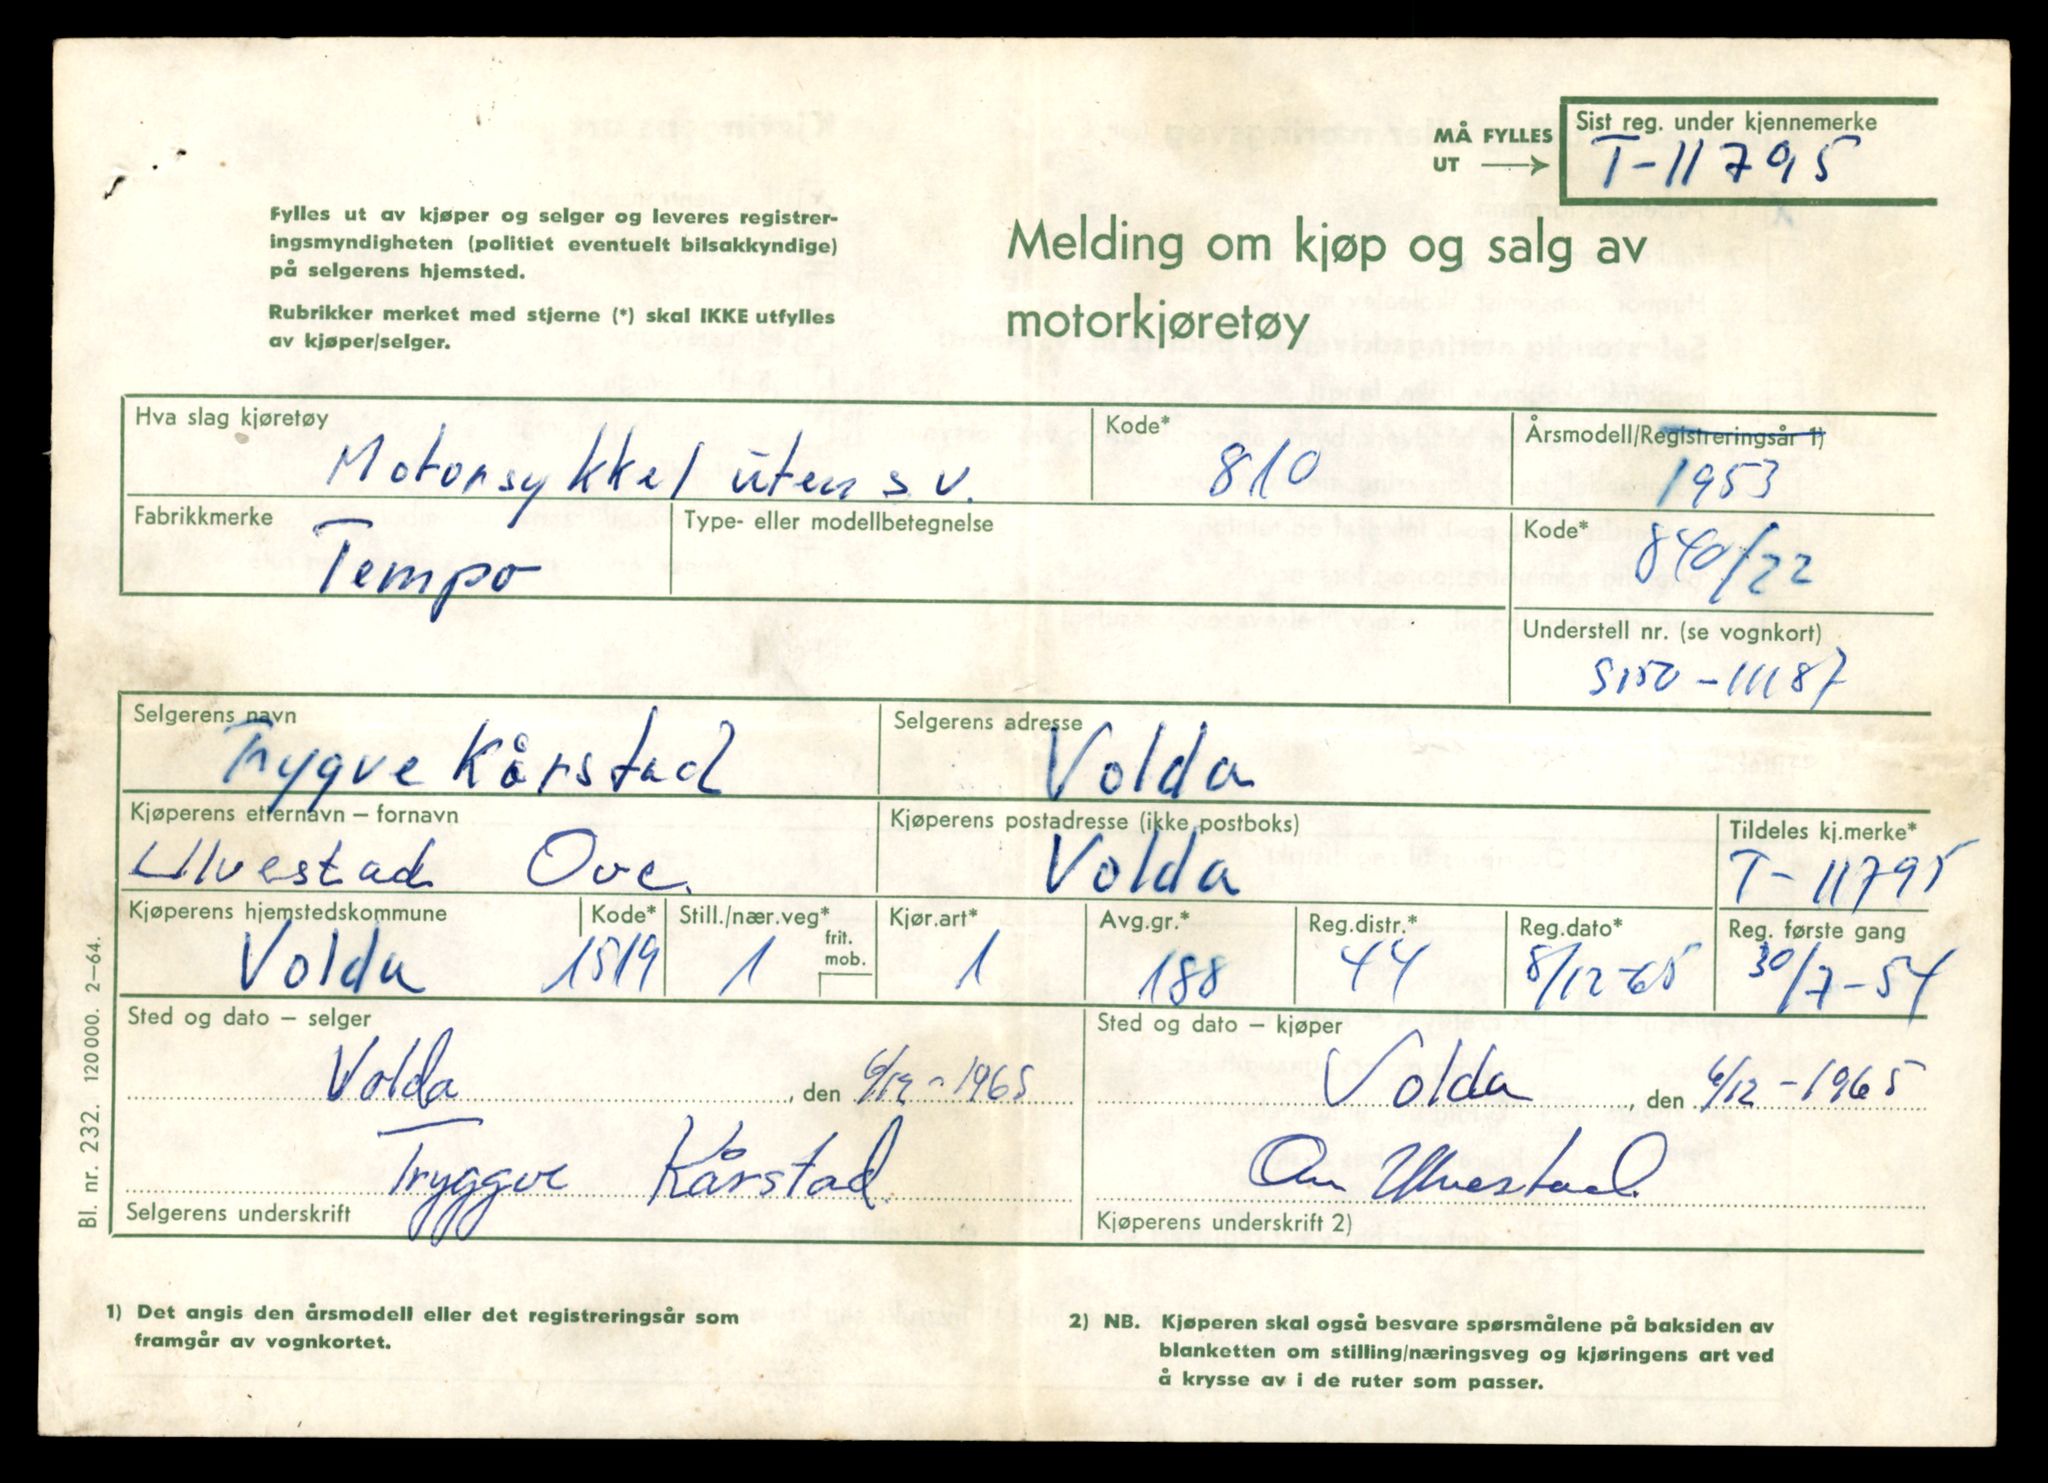 MÅ FYLLES
UT
Sist reg. under kjennemerke
T-11795
Fylles ut av kjøper og selger og leveres registrer-
ingsmyndigheten (politiet eventuelt bilsakkyndige)
på selgerens hjemsted.
Rubrikker merket med stjerne (*) skal IKKE utfylles
av kjøper/selger.
Melding om kjøp og salg av
motorkjøretøy
Hva slag kjøretøy
Motorsykkel uten s.v.
Kode*
810
Årsmodell/Registreringsår 1)
1953
Fabrikkmerke
Tempo
Type- eller modellbetegnelse
Kode*
840/22
Understell nr. (se vognkort)
S150-11187
Selgerens navn
Trygve Kårstad
Selgerens adresse
Volda
Kjøperens etternavn – fornavn
Ulvestad Ove.
Kjøperens postadresse (ikke postboks)
Volda
Tildeles kj.merke*
T-11795
Kjøperens hjemstedskommune
Volda
Kode*
1519
Still./nær.veg*
1
frit.
mob.
Kjør.art*
1
Avg.gr.*
188
Reg.distr.*
44
Reg.dato*
8/12-65
Reg. første gang
30/7-54
Sted og dato – selger
Volda, den 6/12-1965
Tryggve Kårstad
Selgerens underskrift
Sted og dato – kjøper
Volda, den 6/12-1965
Ove Ulvestad.
Kjøperens underskrift 2)
Bl. nr. 232. 120 000. 2–64.
1) Det angis den årsmodell eller det registreringsår som
framgår av vognkortet.
2) NB. Kjøperen skal også besvare spørsmålene på baksiden av
blanketten om stilling/næringsveg og kjøringens art ved
å krysse av i de ruter som passer.